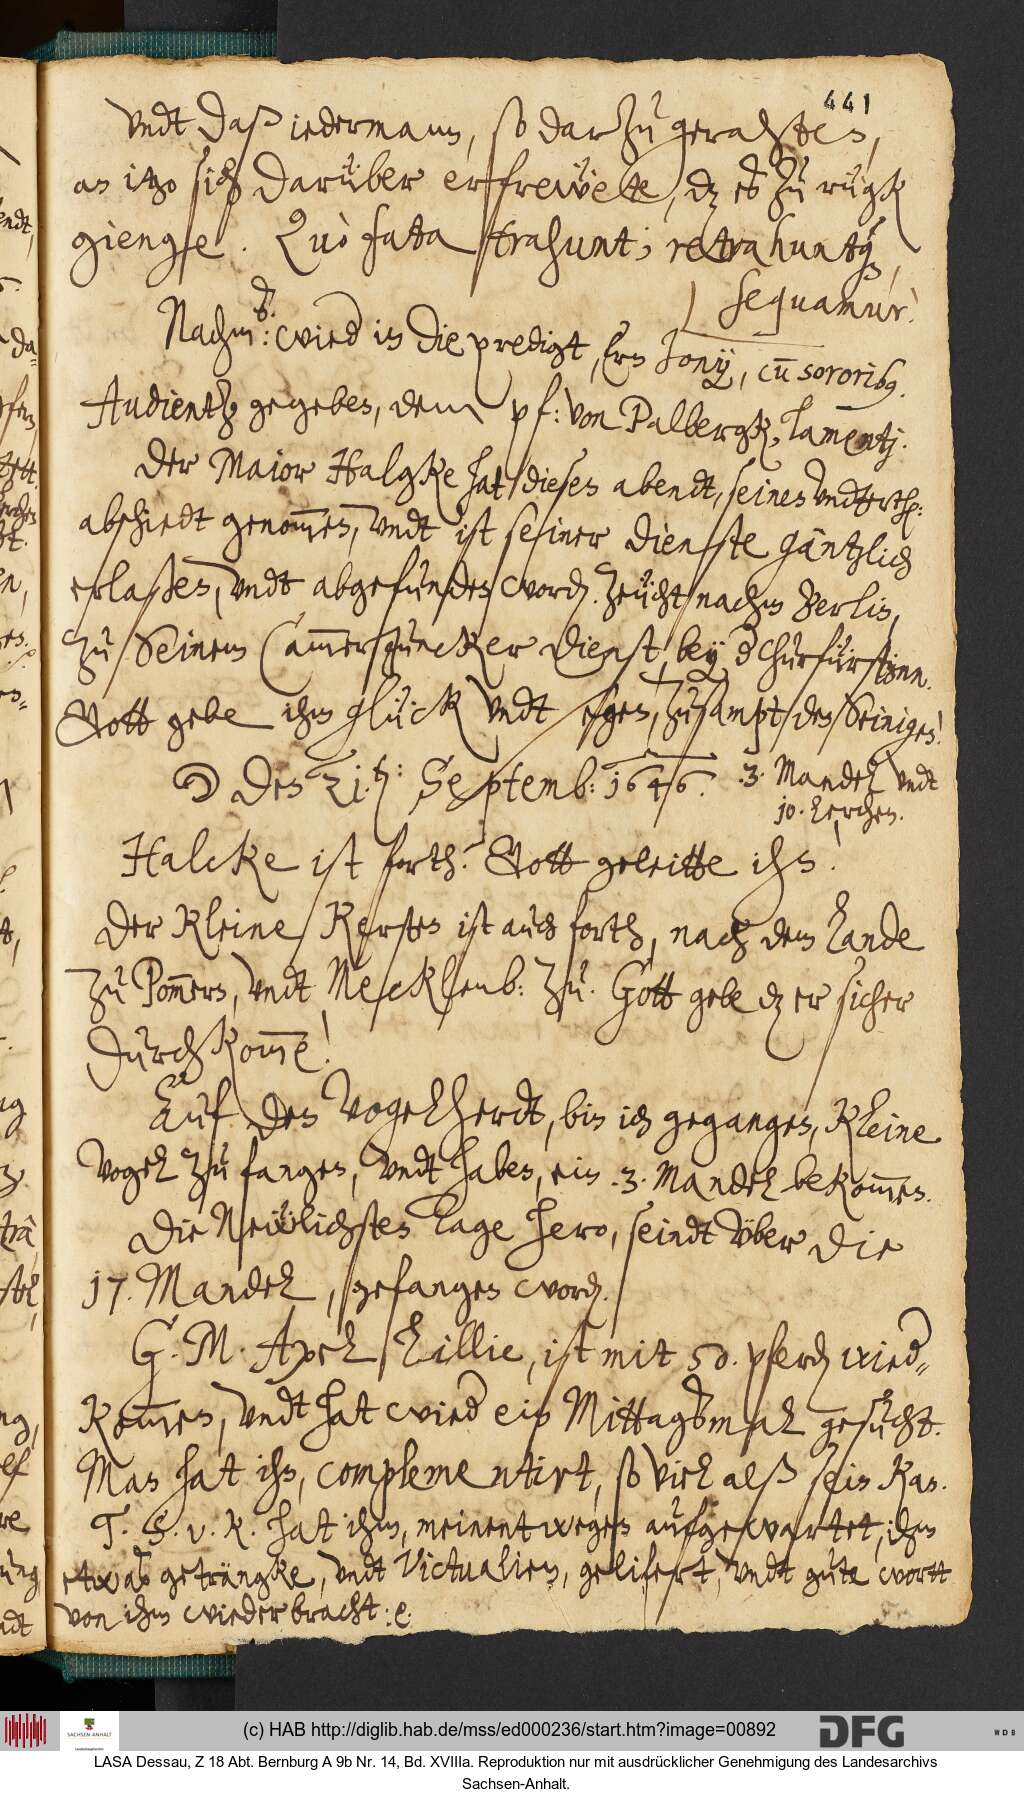 441
undt daß iedermann, so darzu gerahten,
an itzo sich darüber erfreẅete, dz es zu rügk
gienge. Quò fata trahunt; retrahuntq́;,
sequamur!
Nachm: wied in die predigt, Ern Jonij, cū sororib9.
Audientz gegeben, dem pf: von Palbergk, Lamentj.
Der Maior Halgke hat dieses abendt, seinen undterth:
abschiedt genom̄en, undt ist seiner dienste gäntzlich
erlaßen, undt abgefunden word. Zeücht nachm Berlin,
zu Seinem Cam̄erJuncker dienst, bey d Churfürstinn.
Gott gebe ihm glück undt segen, zusampt den Seinigen!
☽ den 21. Septemb: 1646. .3. Mandel undt
10. Lerchen.
Halcke ist forth. Gott geleitte ihn!
Der kleine Kersten ist auch forth, nach dem Lande
zu Pom̄ern, undt Mecklenb: zu. Gott gebe dz er sicher
durchkom̄e!
Auf den Vogelherdt, bin ich gegangen, kleine
Vogel zu fangen, undt haben, ein .3. Mandel bekom̄en.
Die Neẅlichsten Tage hero, seindt über die
17. Mandel, gefangen word.
G. M. Axel Lillie, ist mit 50. pferd wied=
kom̄en, undt hat wied ein Mittagsmal gesucht.
Man hat ihn, complementirt, so viel alß sein kan.
T. S. v. K. hat ihm, meinentwegen aufgewartet, ihm
etwas geträngke, undt Victualien, gelifert, undt gute wortt
von ihm wiederbracht: e.
(c) HAB http://diglib.hab.de/mss/ed000236/start.htm?image=00892
SACHSEN-ANHALT
DFG
WDB
LASA Dessau, Z 18 Abt. Bernburg A 9b Nr. 14, Bd. XVIIIa. Reproduktion nur mit ausdrücklicher Genehmigung des Landesarchivs
Sachsen-Anhalt.